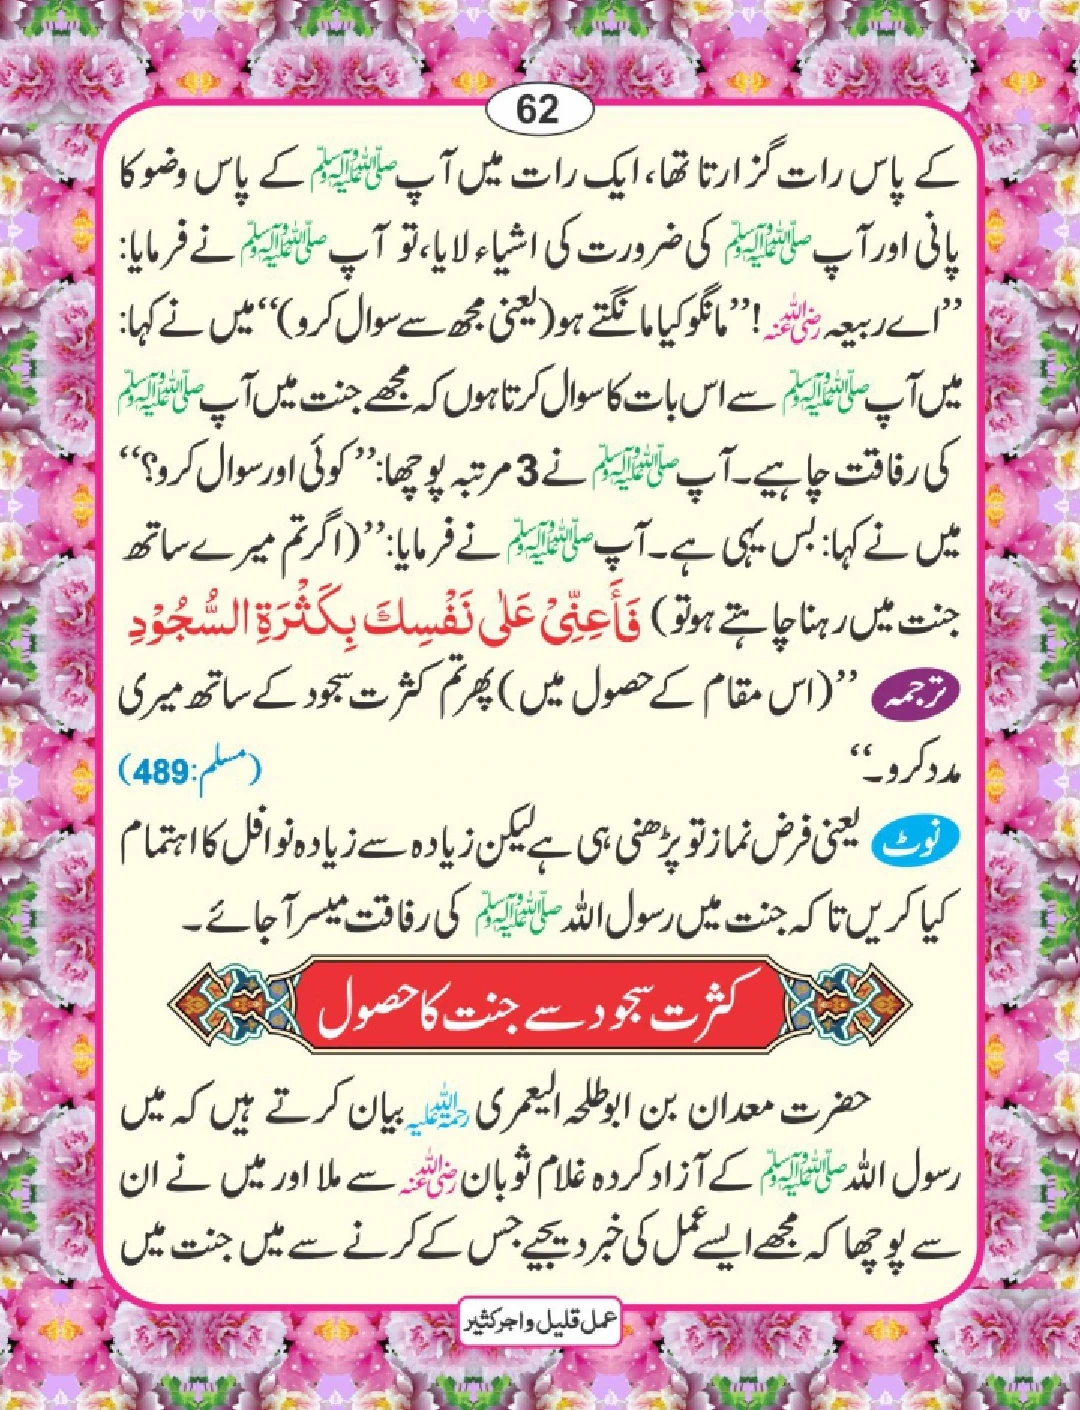 62
کے پاس رات گزارتا تھا، ایک رات میں آپ صلی اللہ علیہ وآلہ وسلم کے پاس وضو کا
پانی اور آپ صلی اللہ علیہ وآلہ وسلم کی ضرورت کی اشیاء لایا، تو آپ صلی اللہ علیہ وآلہ وسلم نے فرمایا:
”اے ربیعہ رضی اللہ عنہ !“ ”مانگو کیا مانگتے ہو (یعنی مجھ سے سوال کرو)“ میں نے کہا:
میں آپ صلی اللہ علیہ وآلہ وسلم سے اس بات کا سوال کرتا ہوں کہ مجھے جنت میں آپ صلی اللہ علیہ وآلہ وسلم
کی رفاقت چاہیے۔ آپ صلی اللہ علیہ وآلہ وسلم نے 3 مرتبہ پوچھا: ”کوئی اور سوال کرو؟“
میں نے کہا: بس یہی ہے۔ آپ صلی اللہ علیہ وآلہ وسلم نے فرمایا: ”(اگر تم میرے ساتھ
جنت میں رہنا چاہتے ہو تو) فَأَعِنِّیْ عَلٰی نَفْسِكَ بِكَثْرَةِ السُّجُوْدِ
ترجمہ ”(اس مقام کے حصول میں) پھر تم کثرت سجود کے ساتھ میری
مدد کرو۔“ (مسلم:489)
نوٹ یعنی فرض نماز تو پڑھنی ہی ہے لیکن زیادہ سے زیادہ نوافل کا اہتمام
کیا کریں تا کہ جنت میں رسول اللہ صلی اللہ علیہ وآلہ وسلم کی رفاقت میسر آ جائے۔
کثرت سجود سے جنت کا حصول
حضرت معدان بن ابو طلحہ الیعمری رحمۃ اللہ علیہ بیان کرتے ہیں کہ میں
رسول اللہ صلی اللہ علیہ وآلہ وسلم کے آزاد کردہ غلام ثوبان رضی اللہ عنہ سے ملا اور میں نے ان
سے پوچھا کہ مجھے ایسے عمل کی خبر دیجیے جس کے کرنے سے میں جنت میں
عمل قلیل و اجر کثیر